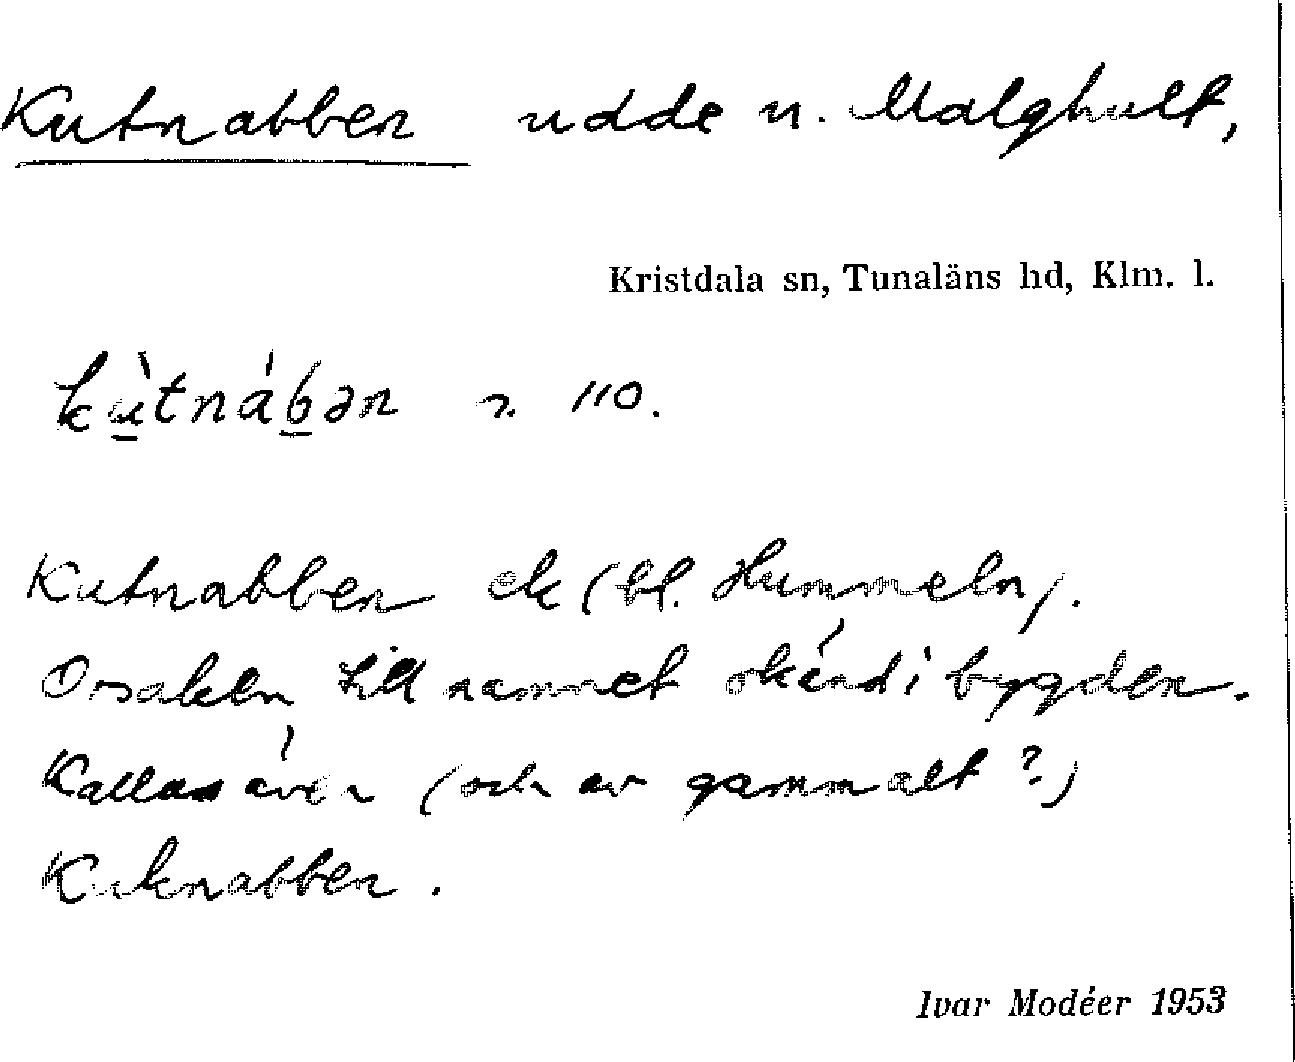 Kutnabben udde u. Malghult,
Kristdala sn, Tunaläns hd, Klm. l.
kùtnábən 110.
Kutnabben ek (bl. Hummeln).
Orsaken till namnet okänd i bygden.
Kallas även (och av gammalt?)
Kuknabben.
Ivar Modéer 1953